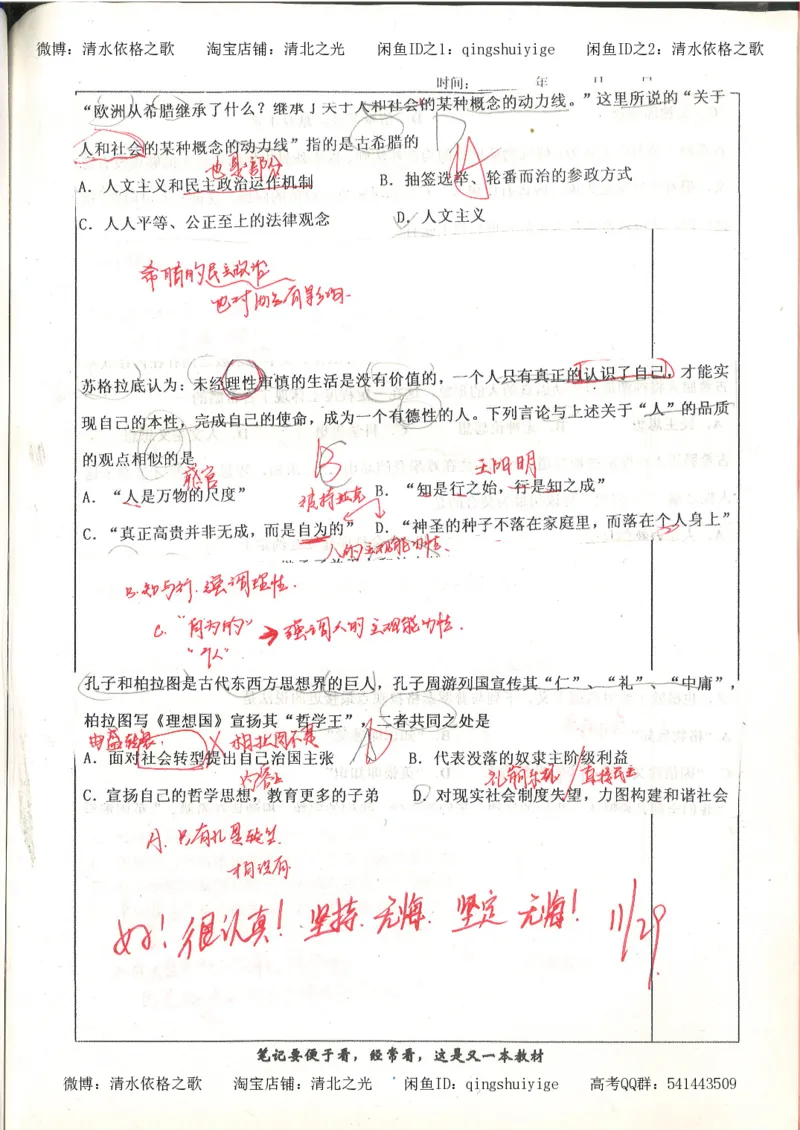 微博：清水依格之歌 淘宝店铺：清北之光 闲鱼ID之1：qingshuiyige 闲鱼ID之2：清水依格之歌
时间： 年 月 日
“欧洲从希腊继承了什么？继承了关于人和社会的某种概念的动力线。”这里所说的“关于
人和社会的某种概念的动力线”指的是古希腊的
D A
也是部分
A．人文主义和民主政治运作机制 B．抽签选举、轮番而治的参政方式
C．人人平等、公正至上的法律观念 D．人文主义
希腊的民主政治
也对欧有影响.
苏格拉底认为：未经理性审慎的生活是没有价值的，一个人只有真正的认识了自己，才能实
现自己的本性，完成自己的使命，成为一个有德性的人。下列言论与上述关于“人”的品质
的观点相似的是
B
感官 王阳明
A．“人是万物的尺度” B．“知是行之始，行是知之成”
C．“真正高贵并非无成，而是自为的” D．“神圣的种子不落在家庭里，而落在个人身上”
人的主观能动性、
B.知与行.强调理性.
C. “自为的” → 强调人的主观能动性.
“个人”
孔子和柏拉图是古代东西方思想界的巨人，孔子周游列国宣传其“仁”、“礼”、“中庸”，
柏拉图写《理想国》宣扬其“哲学王”，二者共同之处是
D
柏拉图不是
A．面对社会转型提出自己治国主张 B．代表没落的奴隶主阶级利益
礼崩乐坏/直接民主
C．宣扬自己的哲学思想，教育更多的子弟 D．对现实社会制度失望，力图构建和谐社会
A. 只有孔是转型.
柏没有
好！很认真！坚持.无悔. 坚定 无悔！ 11/29
笔记要便于看，经常看，这是又一本教材
微博：清水依格之歌 淘宝店铺：清北之光 闲鱼ID：qingshuiyige 高考QQ群：541443509